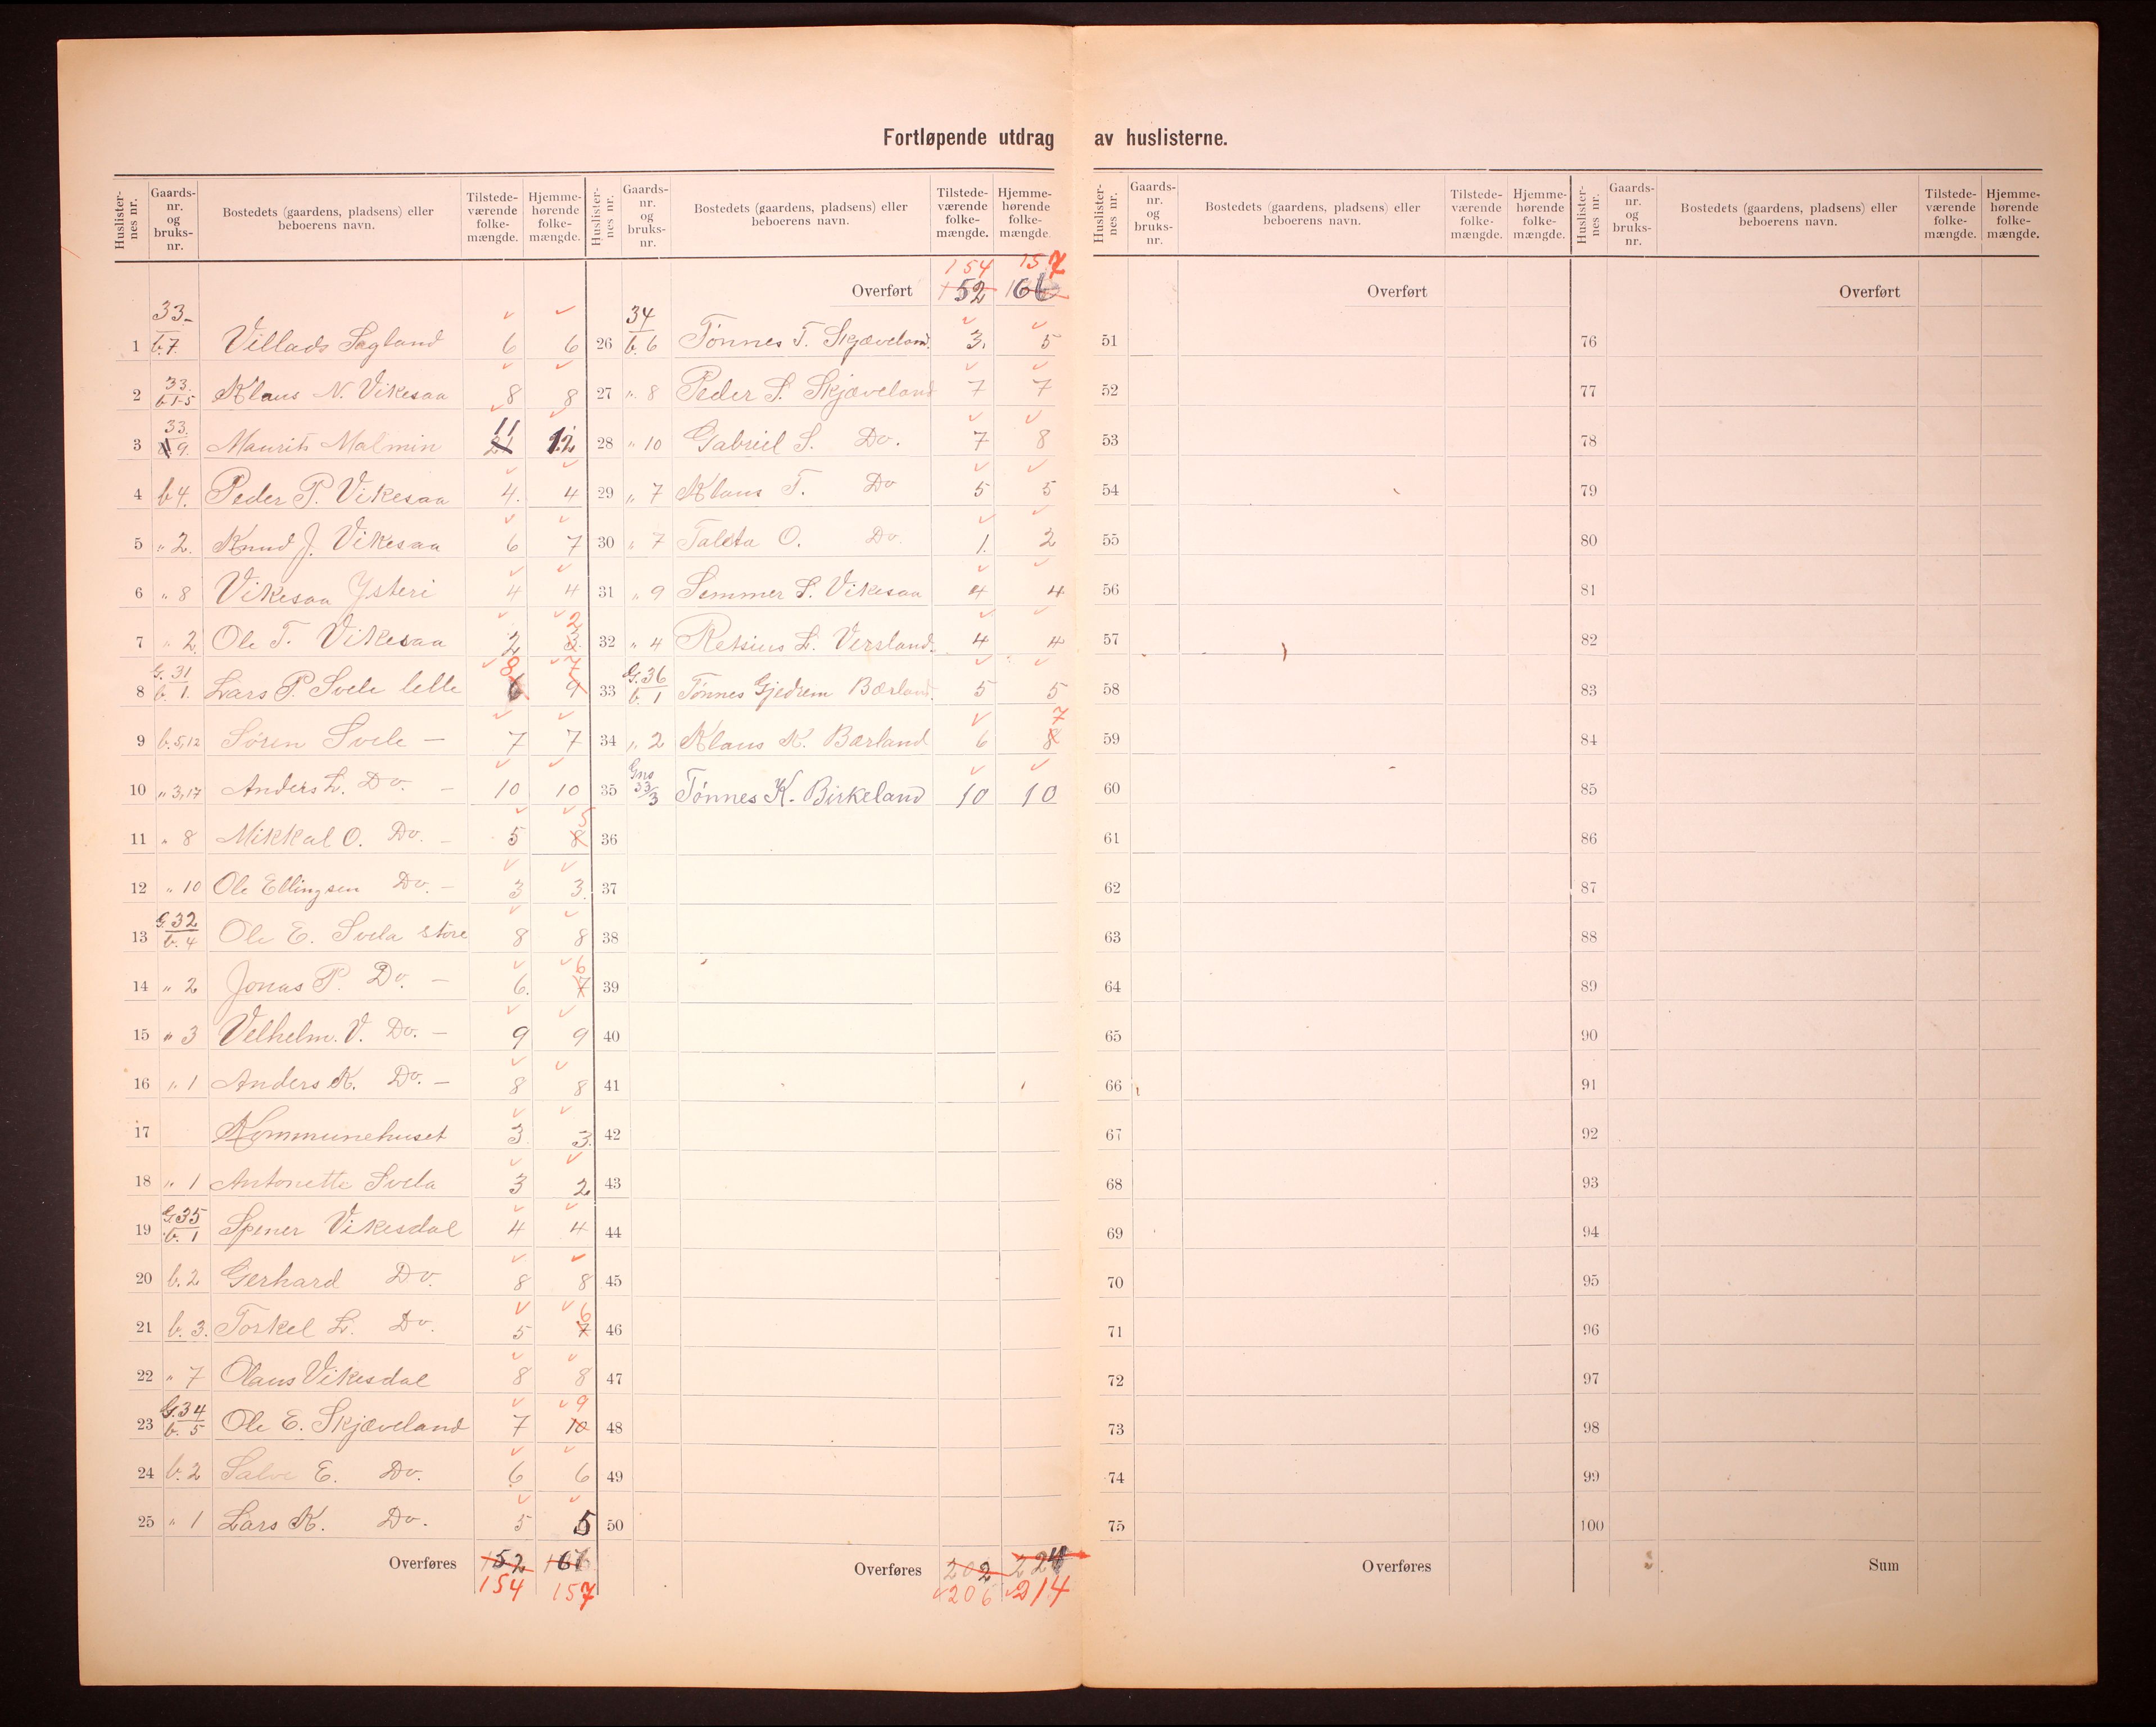 Fortløpende utdrag av huslisterne.
Huslisternes nr. | Gaards-nr. og bruks-nr. | Bostedets (gaardens, pladsens) eller beboerens navn. | Tilstedeværende folkemængde. | Hjemmehørende folkemængde.
1 33- b.7. Villads Sagland 6 6
2 33. b 1-5 Klaus N. Vikesaa 8 8
3 33. 9. Maurits Malmin 21 11 12
4 b4. Peder P. Vikesaa 4. 4
5 " 2. Knud J. Vikesaa 6 7
6 " 8 Vikesaa Ysteri 4 4
7 " 2 Ole T. Vikesaa 2 3 2
8 G. 31 b. 1. Lars P. Svele lelle 6 8 9 7
9 b. 5,12 Søren Svele — 7 7
10 " 3,17 Anders L. Do. — 10 10
11 " 8 Mikkal O. Do. — 5 8 5
12 " 10 Ole Ellingsen Do. — 3 3.
13 G. 32 b. 4 Ole E. Svela store 8 8
14 " 2 Jonas P. Do. — 6. 7 6
15 " 3 Velhelm. V. Do. — 9 9
16 " 1 Anders K. Do. — 8 8
17 Kommunehuset 3 3.
18 " 1 Antonette Svela 3 2
19 G 35 b. 1 Spener Vikesdal 4 4
20 b. 2 Gerhard Do. 8 8
21 b. 3. Torkel L. Do. 5 7 6
22 " 7 Olaus Vikesdal 8 8
23 G. 34 b. 5 Ole E. Skjæveland 7 10 9
24 b. 2 Salve E. Do. 6 6
25 " 1 Lars K. Do. 5 5
Overføres 152 154 157
Huslisternes nr. | Gaards-nr. og bruks-nr. | Bostedets (gaardens, pladsens) eller beboerens navn. | Tilstedeværende folkemængde. | Hjemmehørende folkemængde.
154 157
Overført 152
26 34 b. 6 Tønnes T. Skjæveland. 3. 5
27 " 8 Peder S. Skjæveland 7 7
28 " 10 Gabriel S. Do. 7 8
29 " 7 Klaus T. Do 5 5
30 " 7 Taletta O. Do. 1. 2
31 " 9 Semmer S. Vikesaa 4 4
32 " 4 Retsius L. Versland. 4 4
33 G. 36 b. 1 Tønnes Gjedrem Bærland. 5 5
34 " 2 Klaus K. Bærland 6 8 7
35 Gno 33/3 Tønnes K. Birkeland 10 10
36
37
38
39
40
41
42
43
44
45
46
47
48
49
50
Overføres 202 206 224 214
Huslisternes nr. | Gaards-nr. og bruks-nr. | Bostedets (gaardens, pladsens) eller beboerens navn. | Tilstedeværende folkemængde. | Hjemmehørende folkemængde.
Overført
51
52
53
54
55
56
57
58
59
60
61
62
63
64
65
66
67
68
69
70
71
72
73
74
75
Overføres
Huslisternes nr. | Gaards-nr. og bruks-nr. | Bostedets (gaardens, pladsens) eller beboerens navn. | Tilstedeværende folkemængde. | Hjemmehørende folkemængde.
Overført
76
77
78
79
80
81
82
83
84
85
86
87
88
89
90
91
92
93
94
95
96
97
98
99
100
Sum